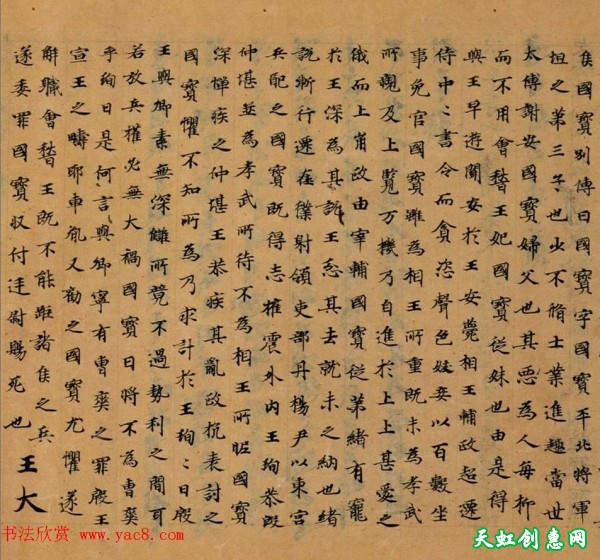 矦國寶別傳曰國寶字國寶平北將軍
坦之第三子也少不脩士業進趣當世
太傅謝安國寶婦父也其惡為人每抑
而不用會稽王妃國寶従妹也由是得
與王早遊間安於王安薨相王輔政超遷
侍中〻書令而貪恣聲色妓妾以百數坐
事免官國寶雖為相王所重既未為孝武
所親及上覽万機乃自進於上上甚愛之
俄而上崩政由宰輔國寶従弟緒有寵
於王深為其說王忿其去就未之納也緒
說漸行遷左僕射領吏部丹楊尹以東宮
兵配之國寶既得志權震外內王珣恭殷
仲堪並為孝武所待不為相王所昵國寶
深憚疾之仲堪王恭疾其亂政抗表討之
國寶懼不知所為乃求計於王珣〻曰殷
王與卿素無深讎所競不過勢利之間耳
若放兵權必無大禍國寶曰將不為曹爽
乎珣曰是何言與卿寧有曹爽之罪殷王
宣王之疇耶車胤又勸之國寶尤懼遂
解職會稽王既不能距諸侯之兵
遂委罪國寶収付廷尉賜死也王大
书法欣赏
www.yac8.com
天虹创惠网